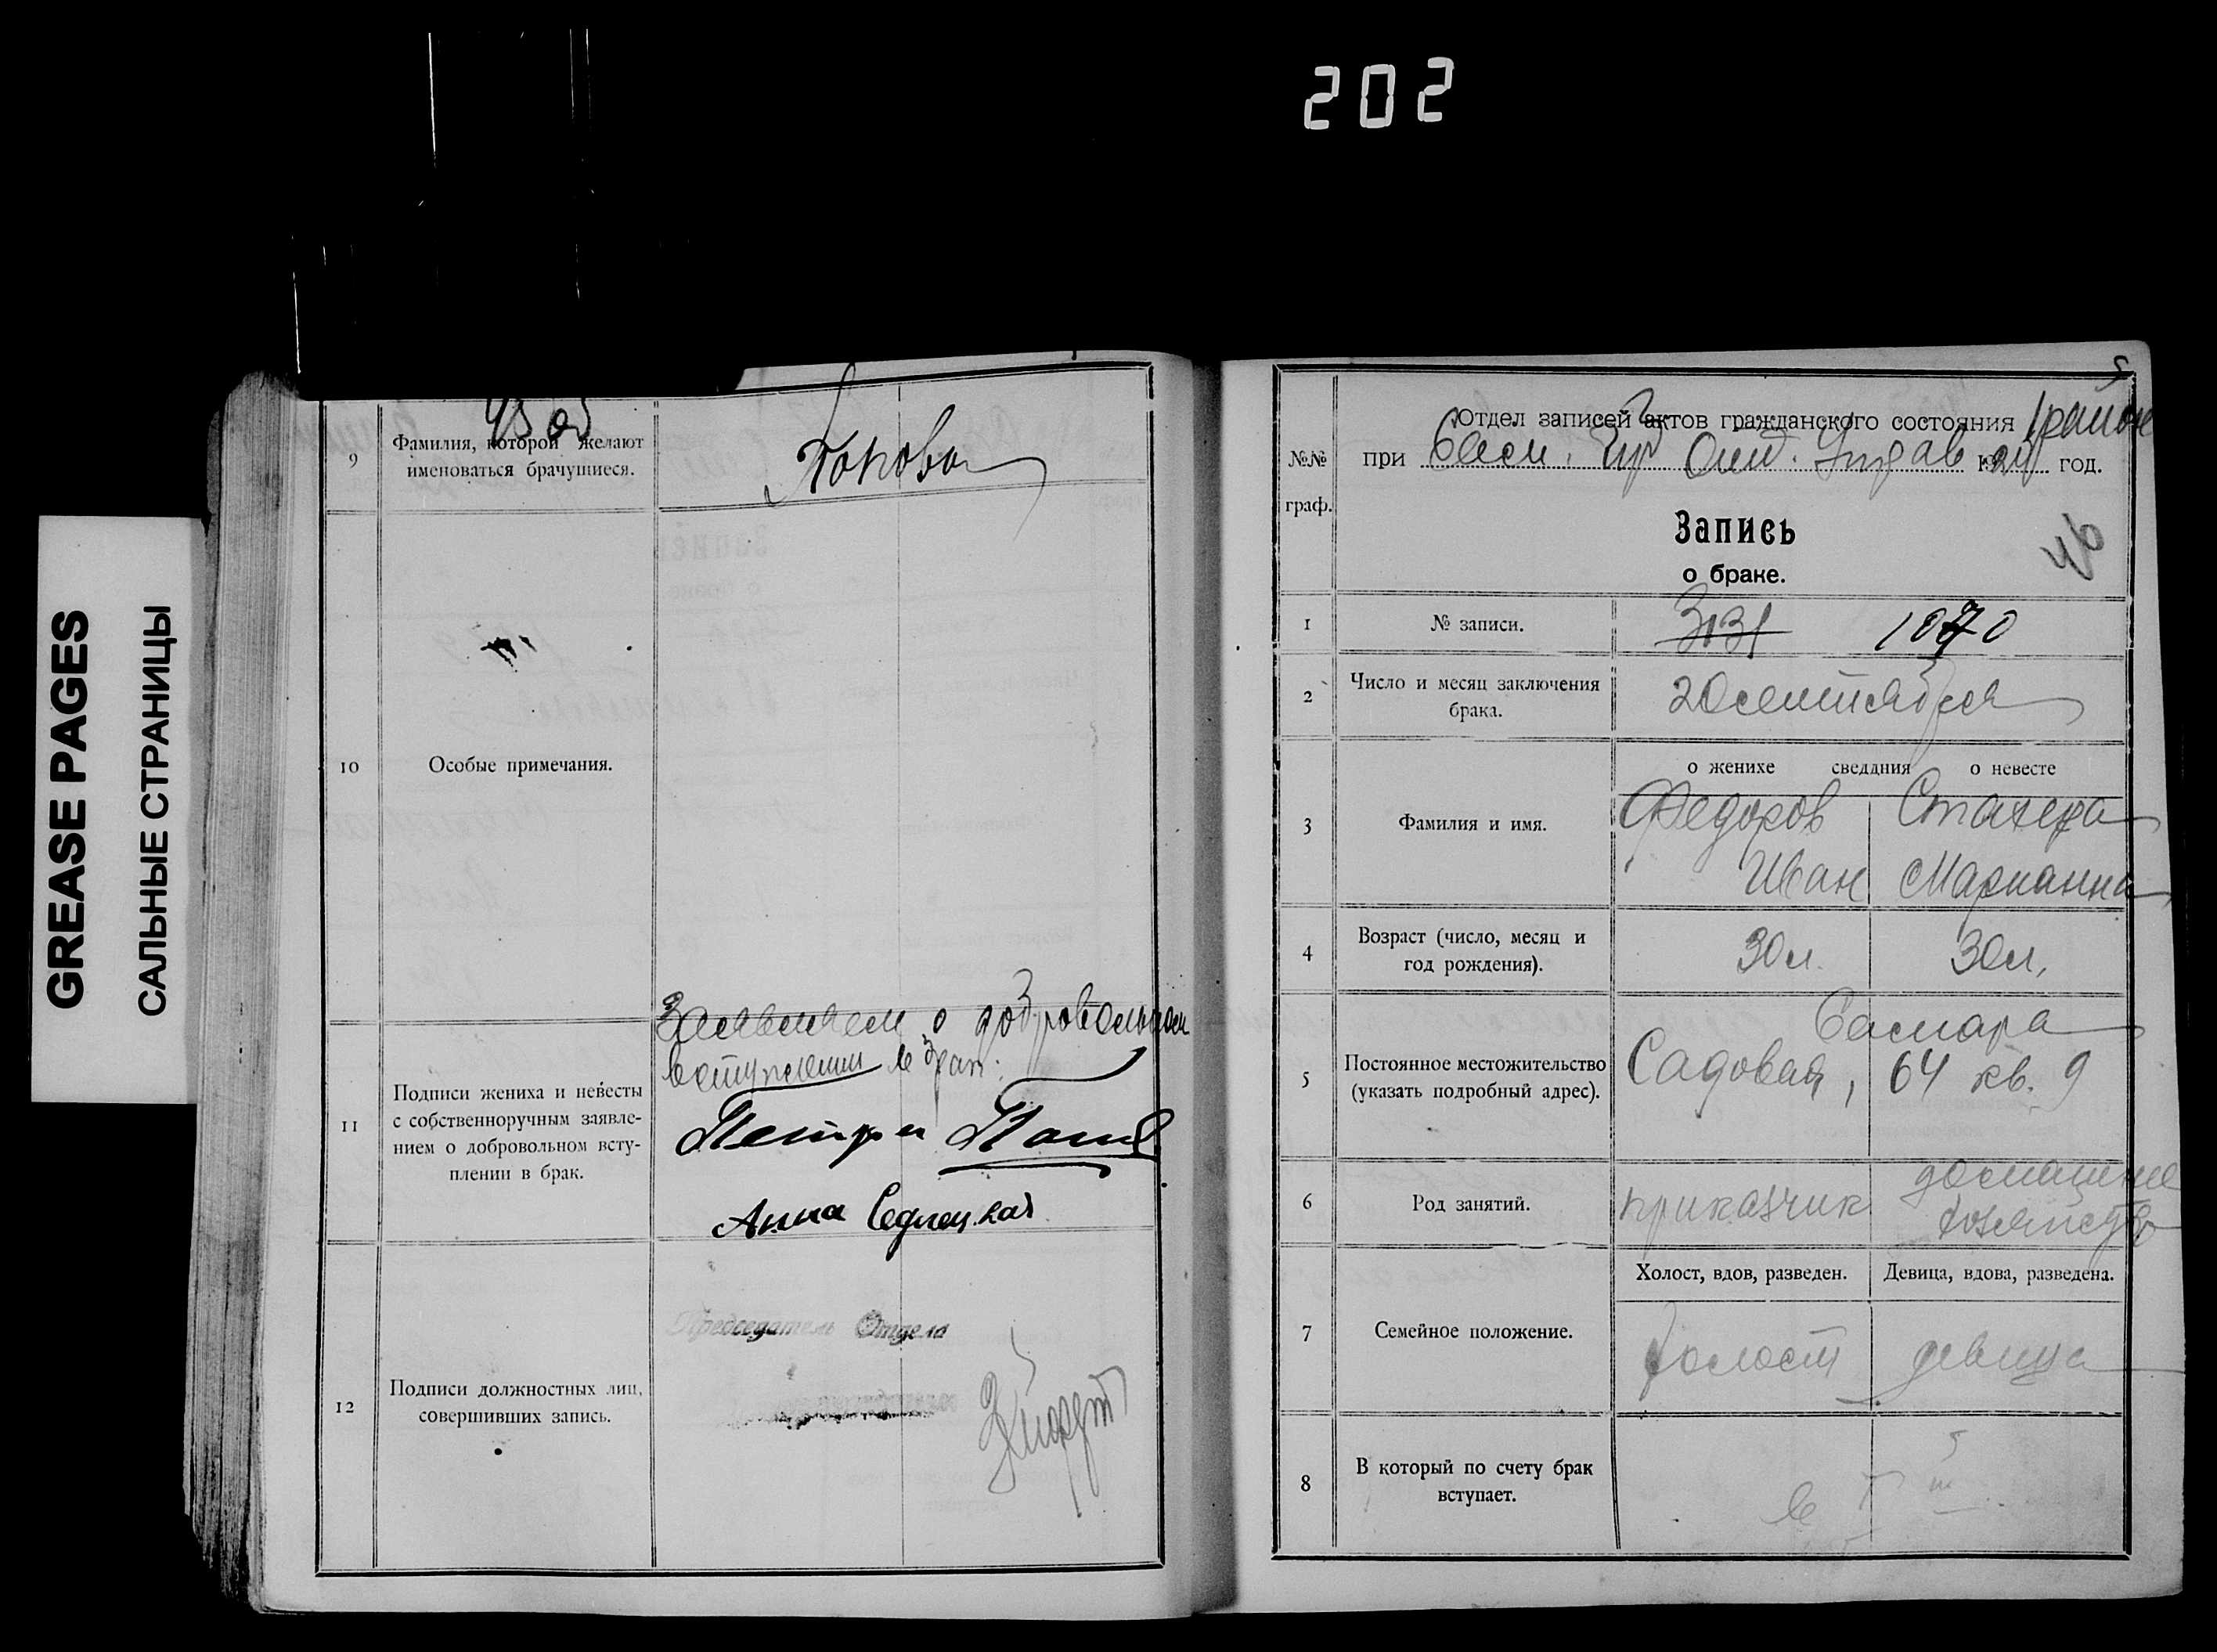 202
GREASE PAGES
САЛЬНЫЕ СТРАНИЦЫ
9
Фамилия, которой желают
именоваться брачущиеся.
Попова
10
Особые примечания.
11
Подписи жениха и невесты
с собственноручным заявле-
нием о добровольном всту-
плении в брак.
Заявляем о добровольном
вступлении в брак:
Петр Попов
Анна Седлецкая
12
Подписи должностных лиц,
совершивших запись.
Председатель Отдела
№№
граф.
Отдел записей актов гражданского состояния 1 района
при Сам. Губ Отд. Управ 192 год.
Запись
о браке.
46
1
№ записи.
1070
2
Число и месяц заключения
брака.
20 сентября
3
Фамилия и имя.
о женихе сведдния о невесте
Федоров
Иван
Марианна
4
Возраст (число, месяц и
год рождения).
30 л. 30 л.
5
Постоянное местожительство
(указать подробный адрес).
Самара
Садовая, 64 кв. 9
6
Род занятий.
приказчик
домашнее
хозяйство
7
Семейное положение.
Холост, вдов, разведен. Девица, вдова, разведена.
холост девица
8
В который по счету брак
вступает.
в I